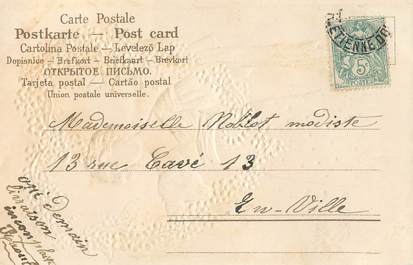 Carte Postale
Postkarte — Post card
Cartolina Postale – Levelező Lap
Dopisnice – Brefkort – Briefkaart – Brevkort
ОТКРЫТОЕ ПИСЬМО.
Tarjeta postal – Cartão postal
Union postale universelle.
5
ETIENNE
Mademoiselle Noblot modiste
13 rue Cavé 13
En-Ville